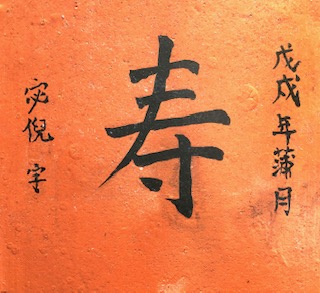 戊戌年蒲月
寿
宓倪宇